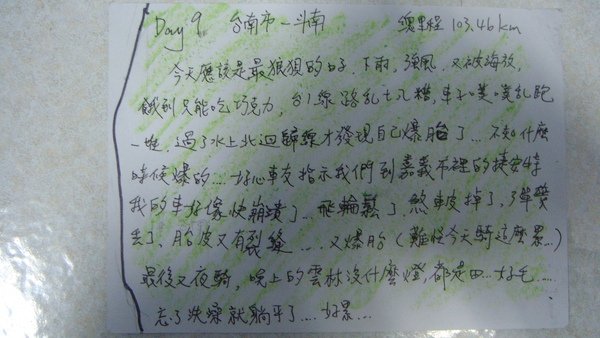 Day 9 台南市－斗南 總里程 103.46km
今天應該是最狼狽的日子,下雨,強風,又被海放,
餓到只能吃巧克力,台1線路亂七八糟,車子噗噗亂跑
一堆,過了水上北迴歸線才發現自己爆胎了...不知什麼
時候爆的....好心車友指示我們到嘉義市裡的捷安特
我的車好像快崩潰了...飛輪鬆了,煞車皮掉了,彈簧
丟了,胎皮又有裂縫....又爆胎(難怪今天騎這麼累...)
最後又夜騎,晚上的雲林沒什麼燈,都是田...好毛....
忘了洗澡就躺平了....好累...